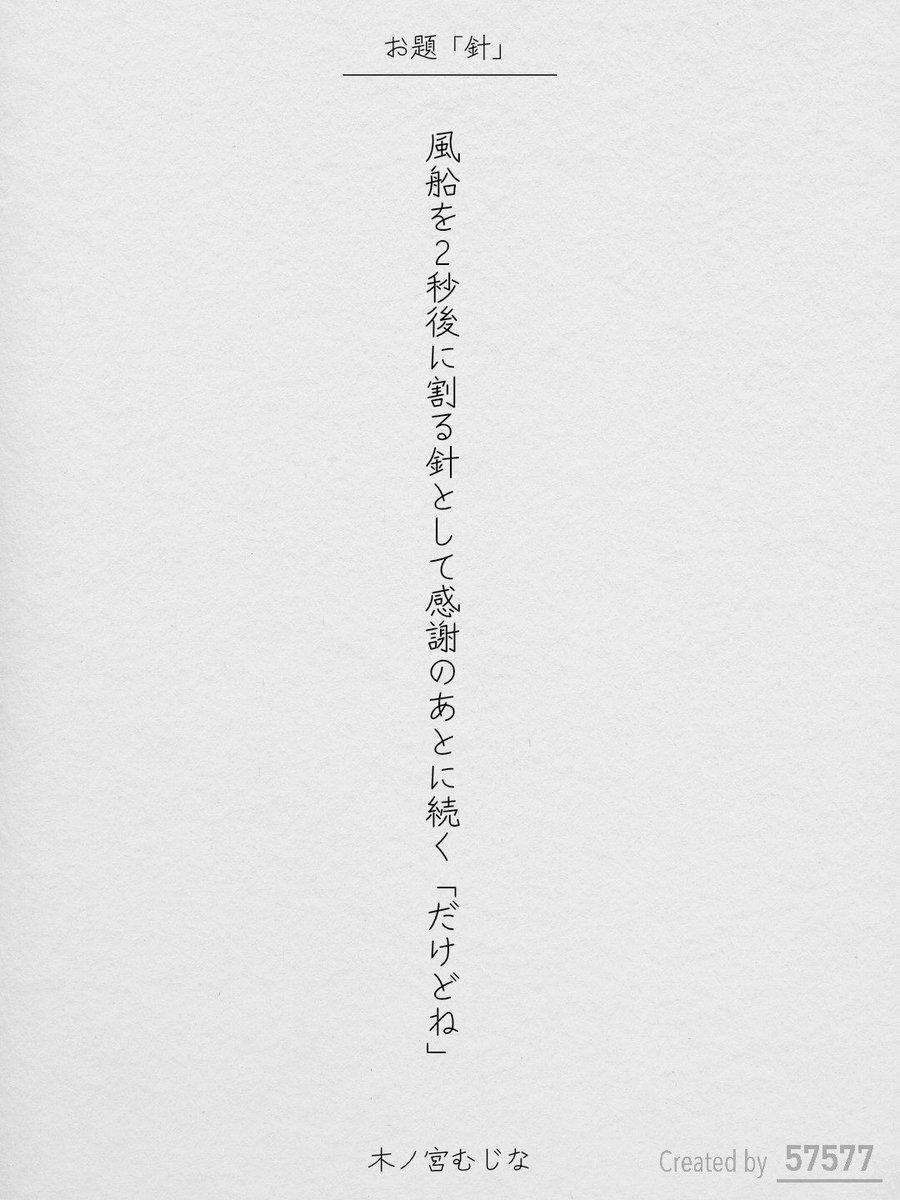 お題「針」
風船を2秒後に割る針として感謝のあとに続く「だけどね」
木ノ宮むじな
Created by 57577